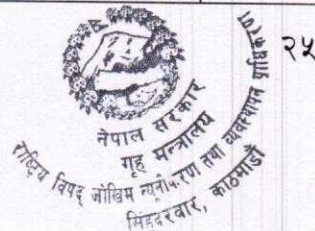 २५
नेपाल सरकार
गृह मन्त्रालय
राष्ट्रिय विपद् जोखिम न्यूनीकरण तथा व्यवस्थापन प्राधिकरण
सिंहदरबार, काठमाडौं